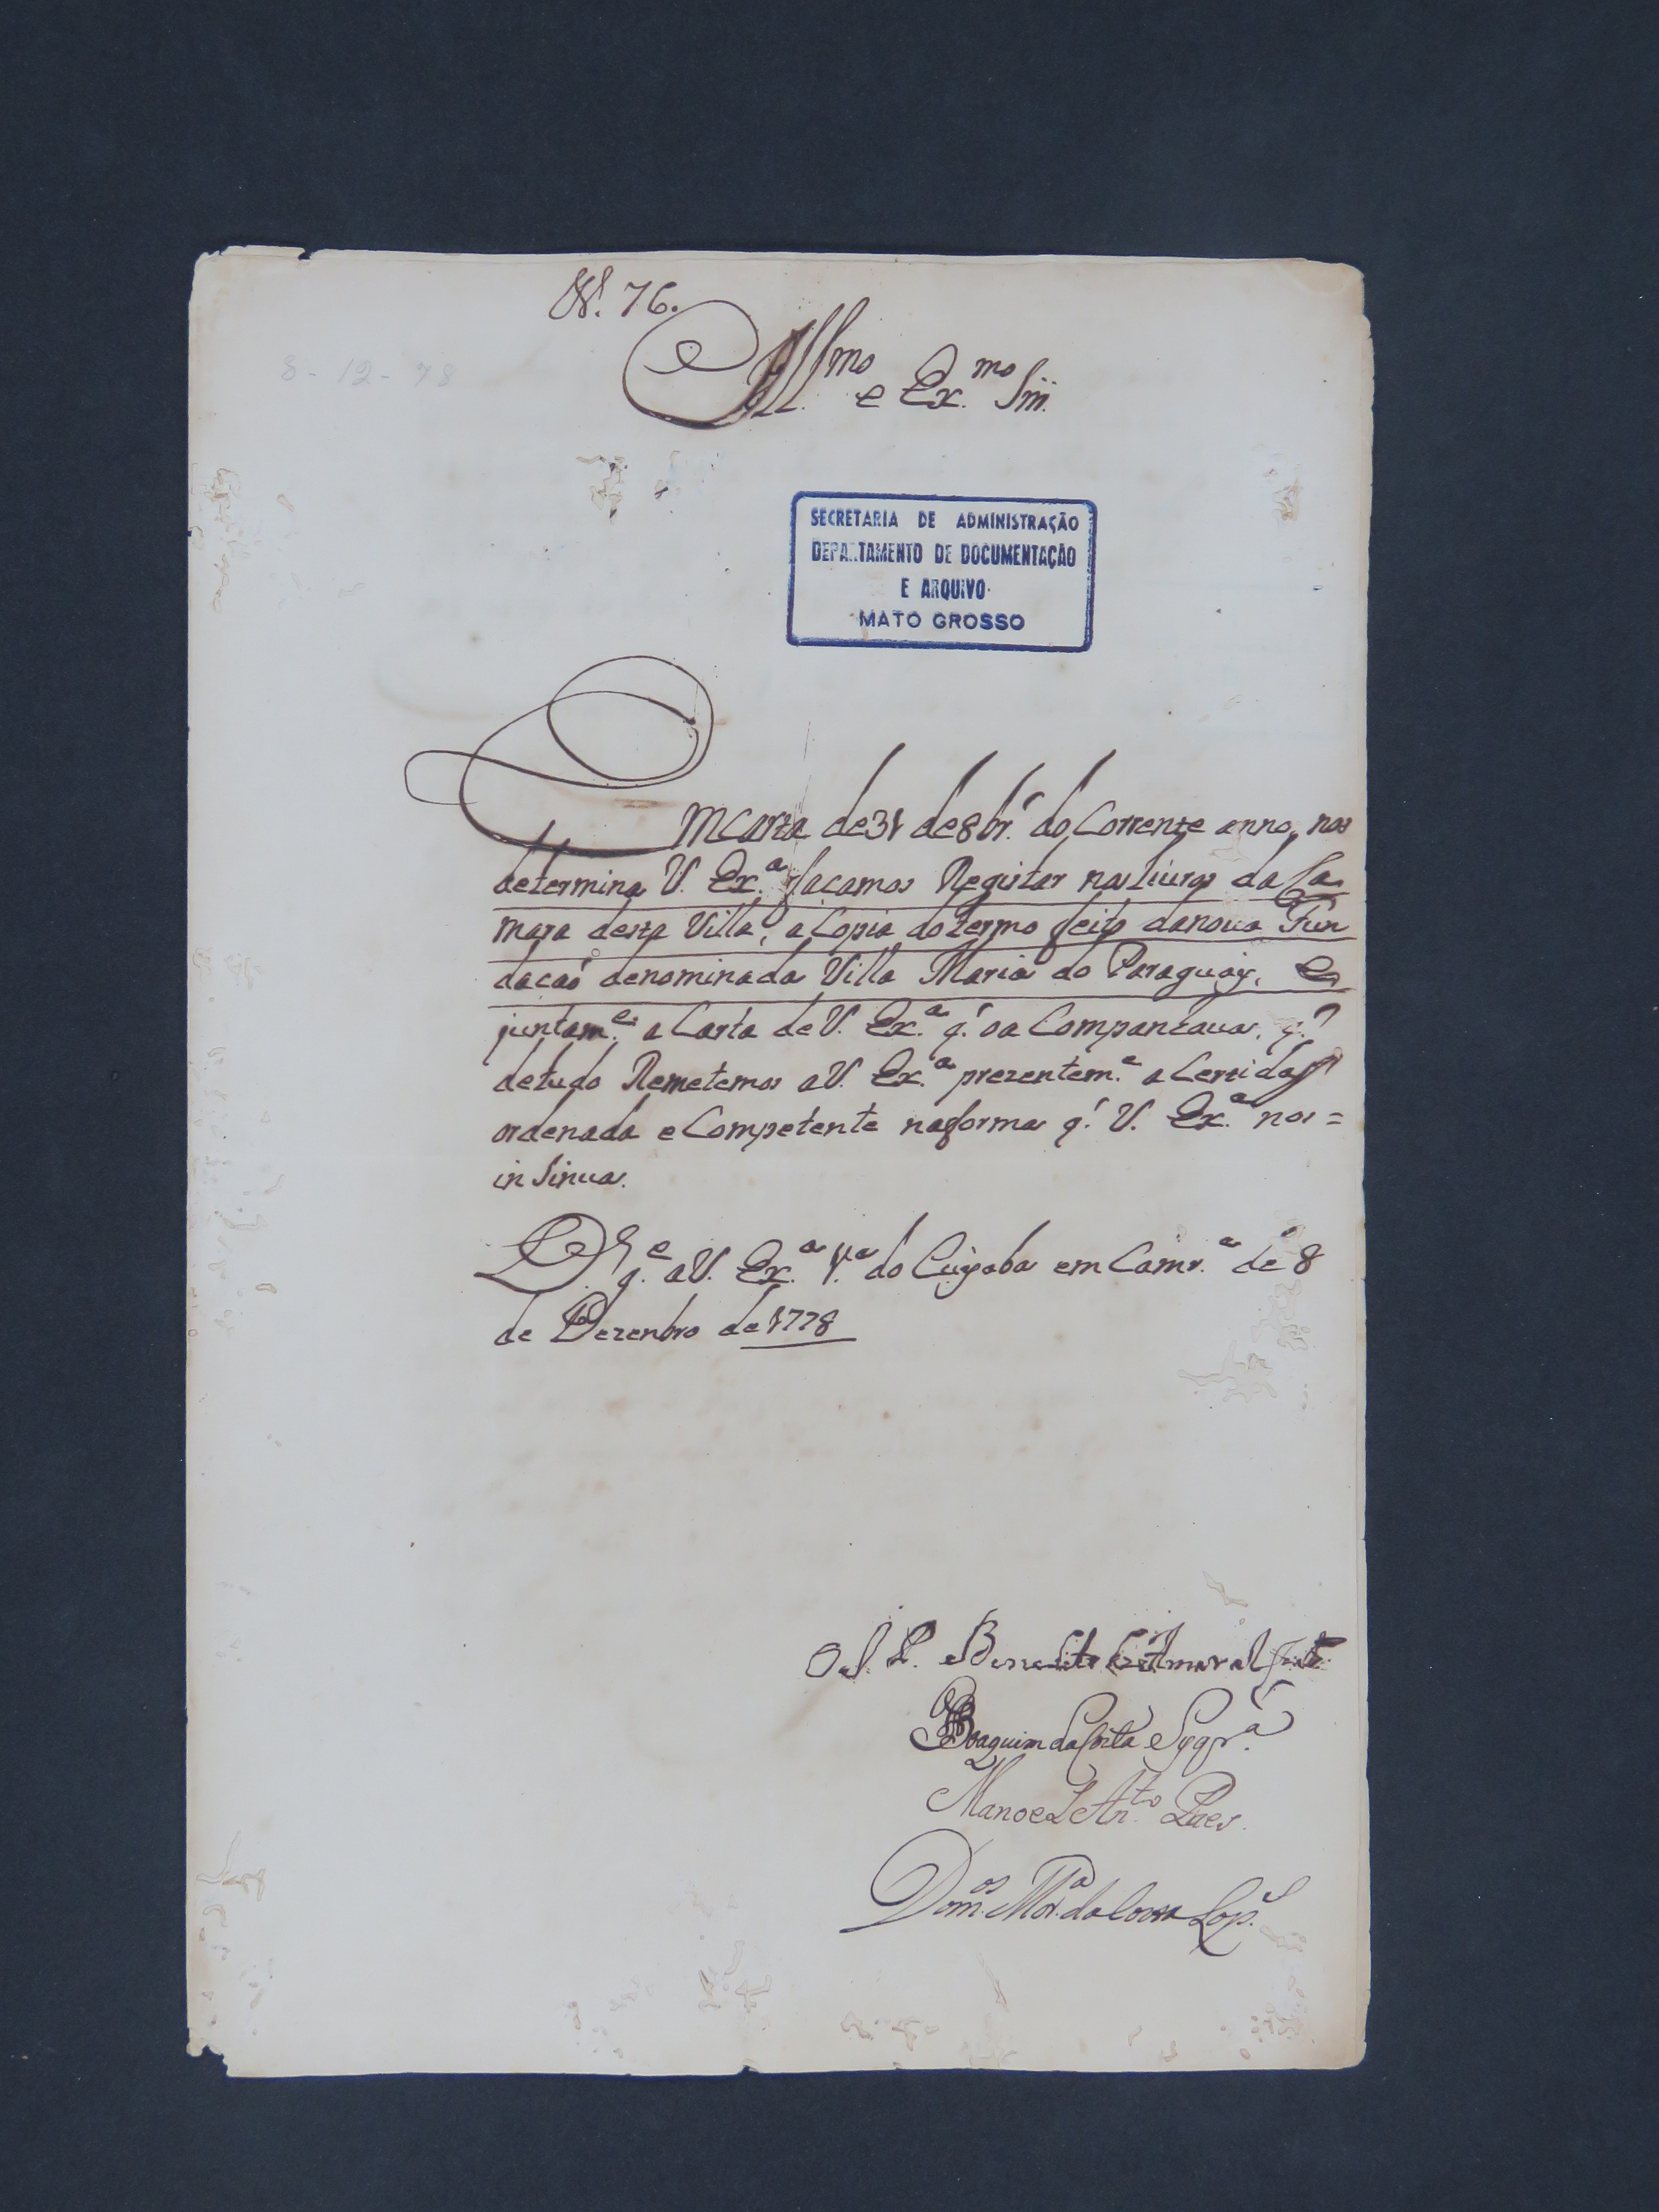 N. 76.
8 - 12 - 78
Ill.mo e Ex.mo Snr.
SECRETARIA DE ADMINISTRAÇÃO
DEPARTAMENTO DE DOCUMENTAÇÃO
E ARQUIVO
MATO GROSSO
Em Carta de 31 de 8br.º do Corrente anno, nos
determina V. Ex.a façamos Registar nos Livros da Ca
mara desta Villa, a Copia do termo feito da nova Fun
dacaõ denominada Villa Maria do Paraguay, e
juntam.e a Carta de V. Ex.a q.' oa Companhava, q.'
detudo Remetemos a V. Ex.a prezentem.e a Certidaõ
ordenada e Competente na forma q.' V. Ex.a nos =
in Sinua.
D.s g.e a V. Ex.a V.a do Cuyaba em Camr.a de 8
de Dezenbro de 1778
O J. P. Benedito
Joaquim da Costa Syqr.a
Manoel An.to Paes.
Dom.os Mor.a da Costa Lop.s